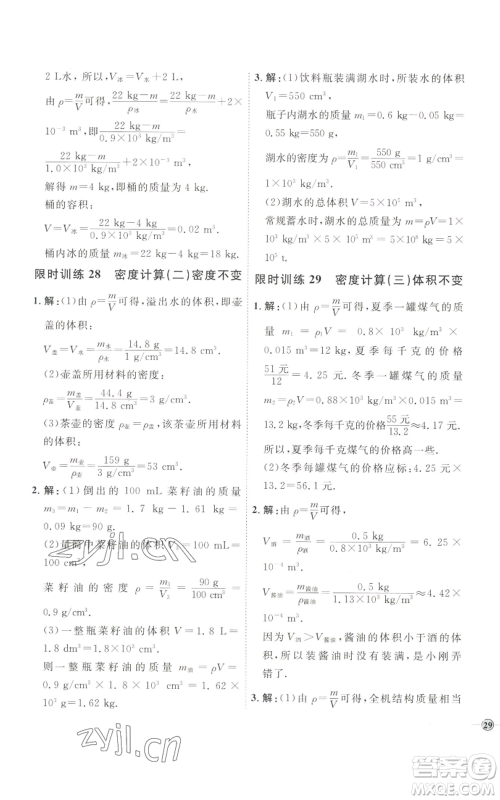 2 L水，所以，V冰=V水+2 L.
由 ρ=m/V 可得，22 kg-m/ρ冰=22 kg-m/ρ水+2×
10⁻³ m³，22 kg-m/0.9×10³ kg/m³=
22 kg-m/1.0×10³ kg/m³+2×10⁻³ m³
解得 m=4 kg，即桶的质量为 4 kg.
桶的容积：
V=V冰=22 kg-4 kg/0.9×10³ kg/m³=0.02 m³.
桶内冰的质量=22 kg-4 kg=18 kg.
限时训练 28 密度计算(二)密度不变
1. 解：(1)由 ρ=m/V 可得，溢出水的体积，即壶
盖的体积：
V盖=V水=m水/ρ水=14.8 g/1 g/cm³=14.8 cm³
(2)壶盖所用材料的密度：
ρ盖=m盖/V盖=44.4 g/14.8 cm³=3 g/cm³
(3)茶壶的密度 ρ壶=ρ盖，该茶壶所用材料
的体积：
V壶=m壶/ρ壶=159 g/3 g/cm³=53 cm³.
2. 解：(1)倒出的 100 mL 菜籽油的质量
m₃=m₁-m₂=1.7 kg-1.61 kg=
0.09 kg=90 g.
(2)量筒中菜籽油的体积 V₃=100 mL=
100 cm³，
菜籽油的密度 ρ=m₃/V₃=90 g/100 cm³=
0.9 g/cm³
(3)一整瓶菜籽油的体积 V=1.8 L=
1.8 dm³=1.8×10³ cm³，
则一整瓶菜籽油的质量 m=ρV=
0.9 g/cm³×1.8×10³ cm³=
1.62×10³ g=1.62 kg.
3. 解：(1)饮料瓶装满湖水时，湖水的体积
V₁=550 cm³，
瓶子内湖水的质量 m₁=0.55 kg=550 g，
湖水的密度为 ρ=m₁/V₁=550 g/550 cm³=1 g/cm³=
1×10³ kg/m³
(2)湖水的体积
常规蓄水时，湖水的总质量为
t.
限时训练 29 密度计算(三)体积不变
1. 解：(1)由 ρ=m/V 可得，夏季一罐煤气的质
量 m₁=ρ₁V=0.8×10³ kg/m³×
0.015 m³=12 kg，夏季每千克的价格
51 元/12=4.25 元. 冬季一罐煤气的质量
m₂=ρ₂V=0.88×10³ kg/m³×0.015 m³=
13.2 kg，冬季每千克的价格55 元/13.2≈4.17 元.
所以，夏季每千克煤气的价格高一些.
(2)冬季每罐煤气的价格应为 4.25×
13.2=56.1 元.
2. 解：由 ρ=m/V 可得，
V酒=m酒/ρ酒=0.5 kg/0.8×10³ kg/m³=6.25×
10⁻⁴ m³，
V酱油=m酱油/ρ酱油=0.5 kg/1.13×10³ kg/m³≈4.42×
10⁻⁴ m³.
因为 V酒>V酱油，酱油的体积小于酒的体
积，以装酱油的瓶子装酒装不下，是小刚弄
错了.
3. 解：(1)由 ρ=m/V 可得，全机结构质量相当
29
zyjl.cn
zyjl.cn